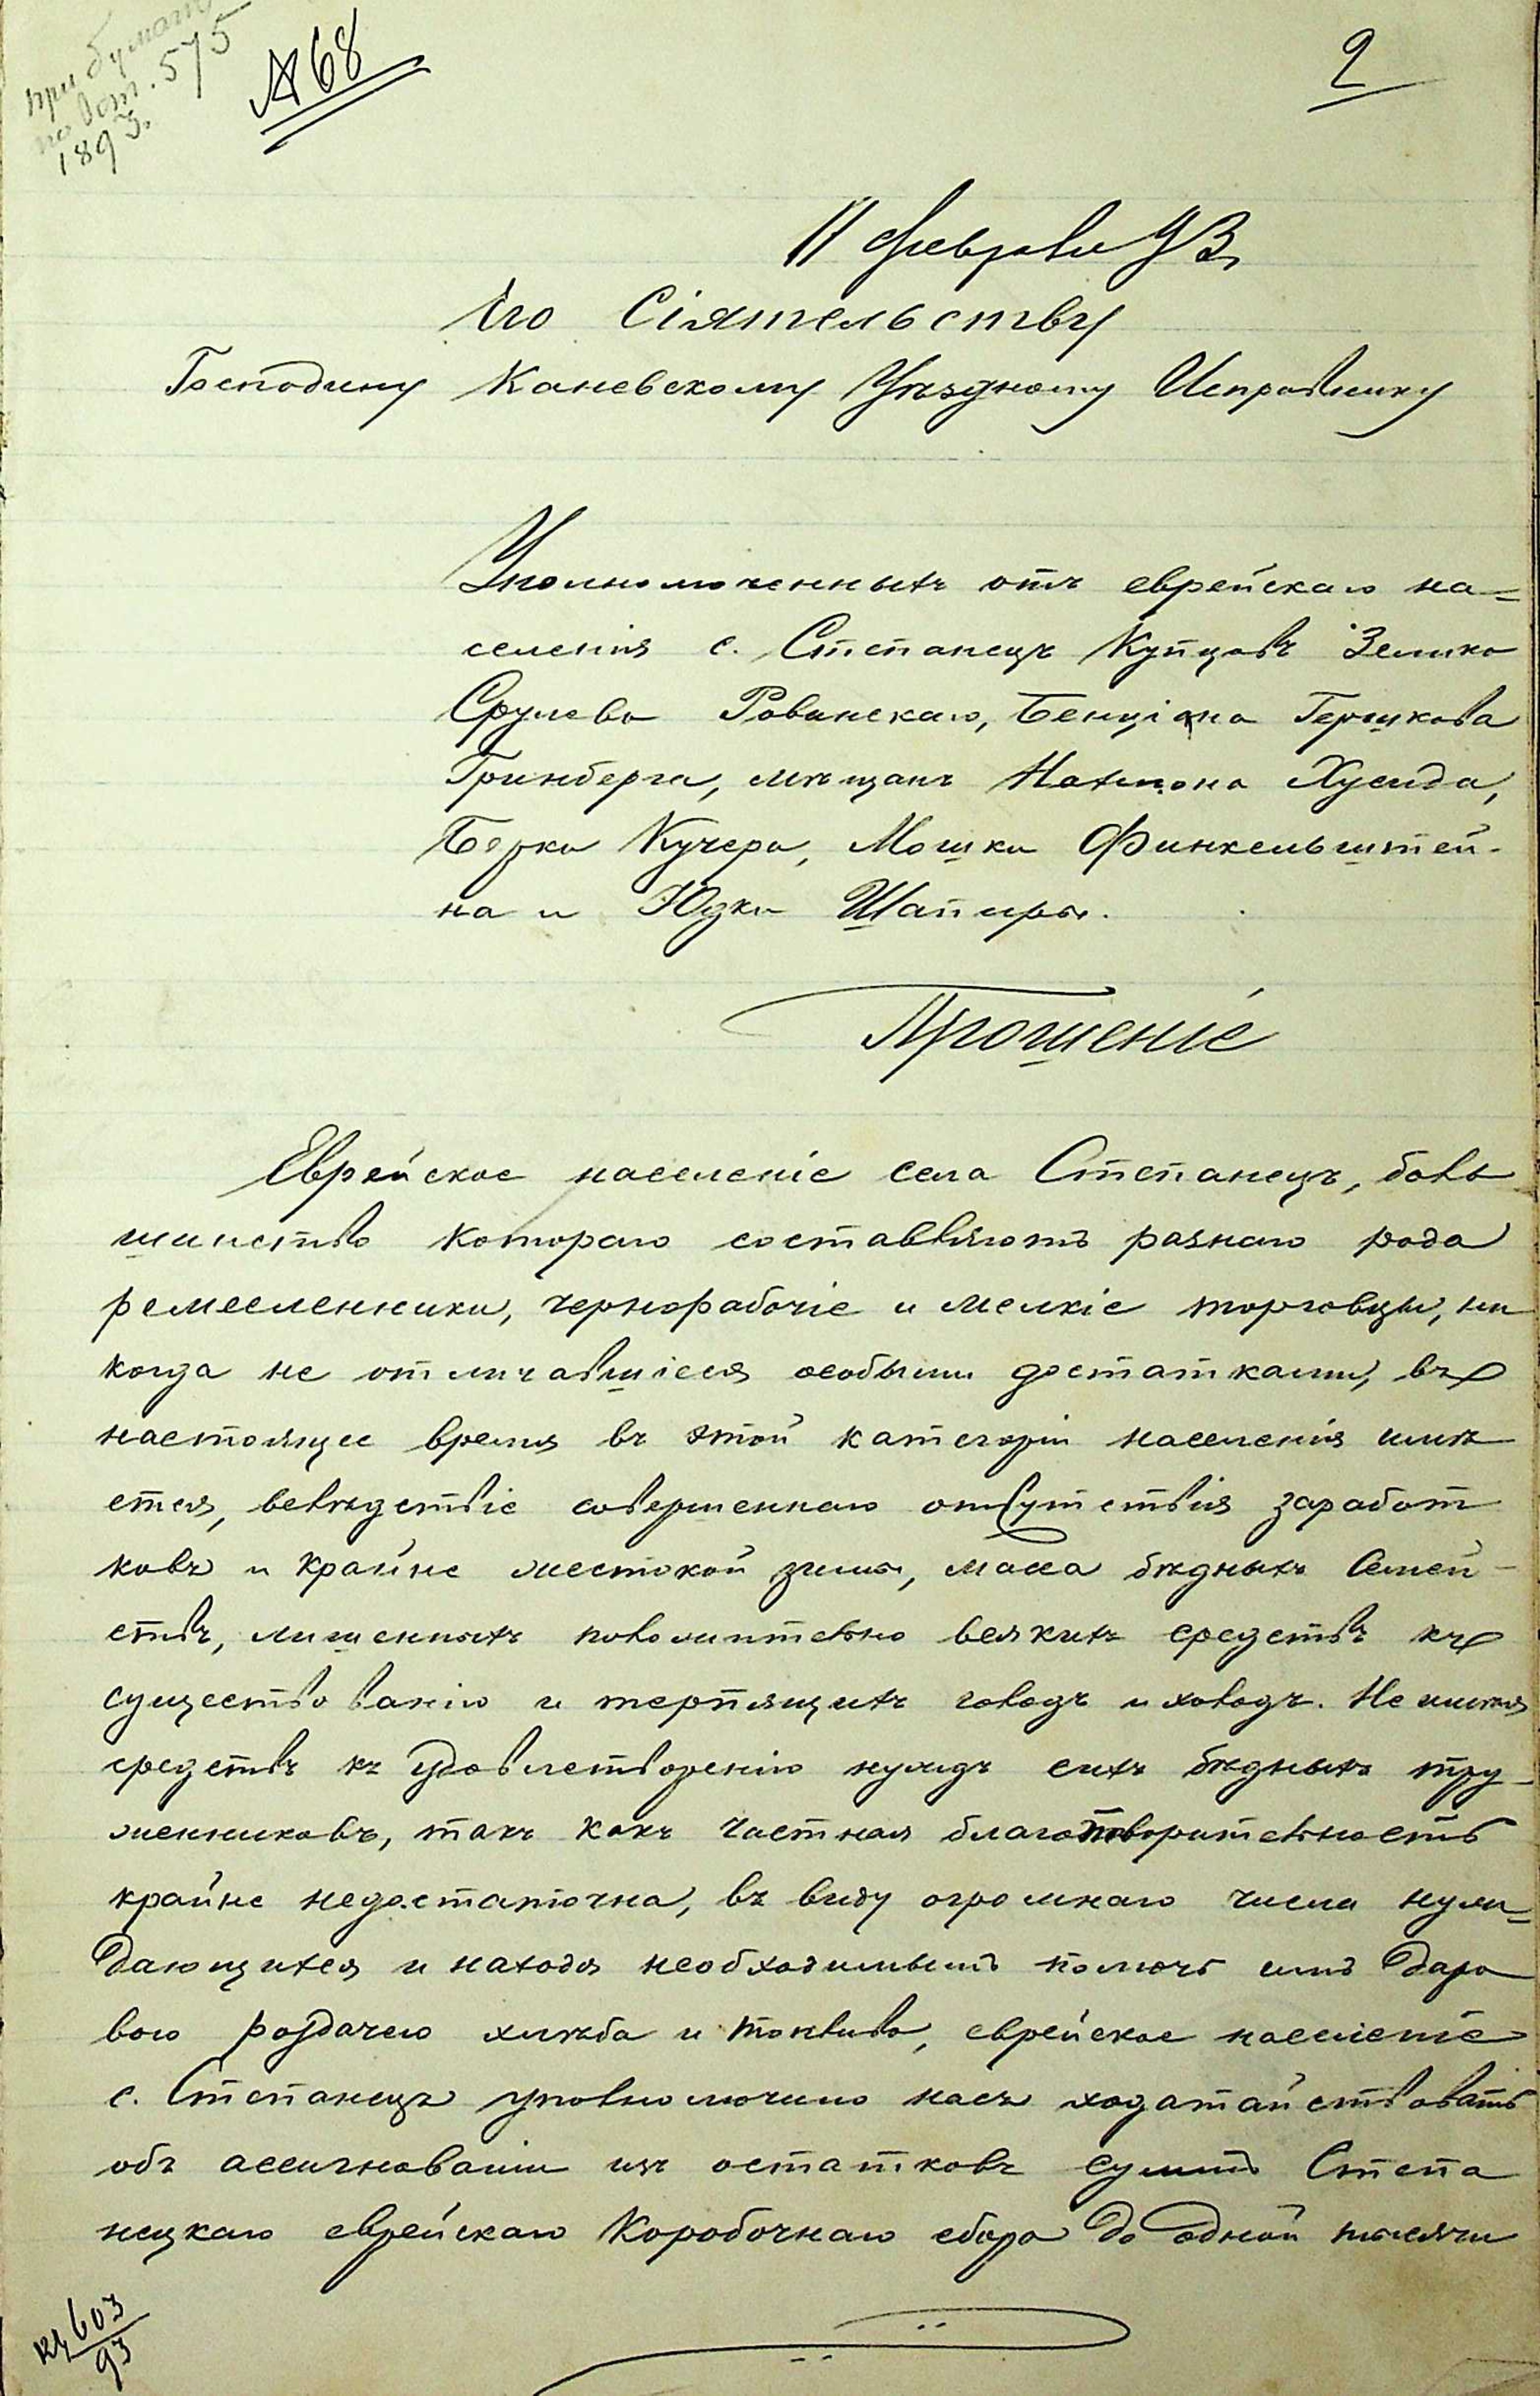 при бумагѣ
1893.
по вѣт. 575
№ 68
2
11 февраля 93
Его Сіятельству
Господину Каневскому Уѣздному Исправнику
Уполномоченныхъ отъ еврейскаго на=
селенія с. Степанецъ Купцовъ Зелика
Срулева Ровинскаго, Бенціона Гершкова
Гринберга, мѣщанъ Нахмона Хусида,
Берка Кучера, Мошки Финкельштей-
на и Юдки Шапиры.
Прошеніе
Еврейское населеніе села Степанецъ, боль
шинство котораго составляютъ разнаго рода
ремесленники, чернорабочіе и мелкіе торговцы, ни
когда не отличавшіеся особыми достатками, въ
настоящее время въ этой категоріи населенія имѣ
ется, вслѣдствіе совершеннаго отсутствія заработ
ковъ и крайне жестокой зимы, масса бѣдныхъ Семей-
ствъ, лишенныхъ положительно всякихъ средствъ къ
существованію и терпящихъ голодъ и холодъ. Не имѣя
средствъ къ удовлетворенію нуждъ сихъ бѣдныхъ тру-
женниковъ, такъ какъ частная благотворительность
крайне недостаточна, въ виду огромнаго числа нуж=
дающихся и находя необходимымъ помочь имъ даро
вою раздачею хлѣба и топлива, еврейское населеніе
с. Степанецъ уполномочило насъ ходатайствовать
объ ассигнованіи изъ остатковъ суммъ Степа
нецкаго еврейскаго Коробочнаго сбора до одной тысячи
603
93